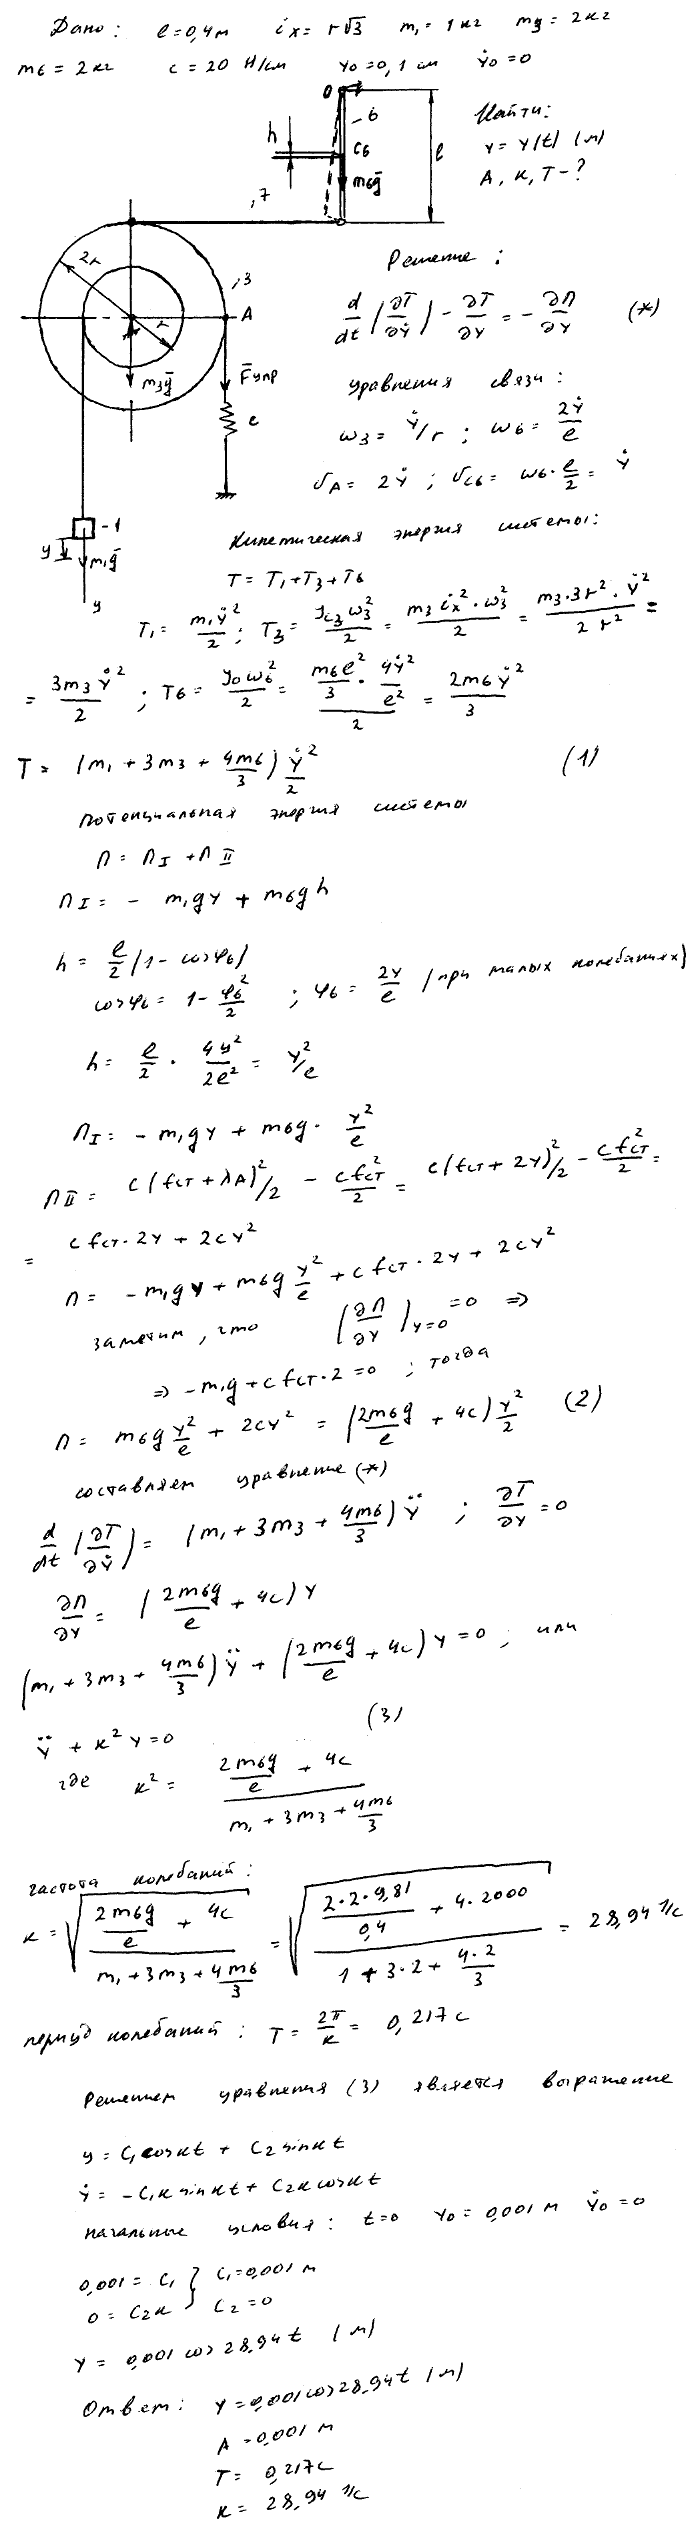 Дано: ℓ=0,4м iх= r√3 m₁= 1кг m₃= 2кг
m₆= 2кг c= 20 Н/см y₀=0,1см ẏ₀=0
O
6
Найти:
h
C₆
ℓ
y= y(t) (м)
m₆ḡ
A, к, T-?
7
2r
3
Решение:
A
r
d/dt (∂T/∂ẏ) - ∂T/∂y = - ∂П/∂y (*)
m₃ḡ
F̄упр
уравнения связи:
c
ω₃= ẏ/r ; ω₆= 2ẏ/ℓ
VA= 2ẏ ; VC6= ω₆·ℓ/2= ẏ
-1
y
m₁ḡ
Кинетическая энергия системы:
y
T= T₁+T₃+T₆
T₁= m₁ẏ²/2; T₃= JC3ω₃²/2= m₃iх²·ω₃²/2= m₃·3r²·ẏ²/2r²=
= 3m₃ẏ²/2 ; T₆= J₀ω₆²/2= (m₆ℓ²/3 · 4ẏ²/ℓ²)/2= 2m₆ẏ²/3
T= (m₁+3m₃+4m₆/3)ẏ²/2 (1)
потенциальная энергия системы
П= ПI+ПII
ПI= - m₁gy + m₆gh
h= ℓ/2 (1-cosφ₆)
cosφ₆= 1-φ₆²/2 ; φ₆= 2y/ℓ (при малых колебаниях)
h= ℓ/2 · 4y²/2ℓ²= y²/ℓ
ПI= -m₁gy + m₆g· y²/ℓ
ПII= c(fст+λA)²/2 - cfст²/2= c(fст+2y)²/2 - cfст²/2=
= cfст·2y + 2cy²
П= -m₁gy+m₆g y²/ℓ+cfст·2y+2cy²
заметим, что (∂П/∂y)y=0 =0 ⇒
⇒ -m₁g+cfст·2=0 ; тогда
П= m₆g y²/ℓ + 2cy² = (2m₆g/ℓ + 4c)y²/2 (2)
составляем уравнение (*)
d/dt (∂T/∂ẏ)= (m₁+3m₃+4m₆/3)ÿ ; ∂T/∂y=0
∂П/∂y= (2m₆g/ℓ + 4c)y
(m₁+3m₃+4m₆/3)ÿ+(2m₆g/ℓ+4c)y=0 ; или
ÿ+к²y=0 (3)
где к²= (2m₆g/ℓ + 4c)/(m₁+3m₃+4m₆/3)
частота колебаний:
к= √((2m₆g/ℓ + 4c)/(m₁+3m₃+4m₆/3)) = √((2·2·9,81/0,4 + 4·2000)/(1+3·2+4·2/3)) = 28,94 1/с
период колебаний: T= 2π/к= 0,217с
Решением уравнения (3) является выражение
y= C₁cosкt + C₂sinкt
ẏ= -C₁кsinкt+ C₂кcosкt
начальные условия: t=0 y₀=0,001м ẏ₀=0
0,001= C₁ } C₁=0,001м
0= C₂к } C₂=0
y= 0,001cos28,94t (м)
Ответ: y=0,001cos28,94t (м)
A=0,001м
T= 0,217с
к= 28,94 1/с